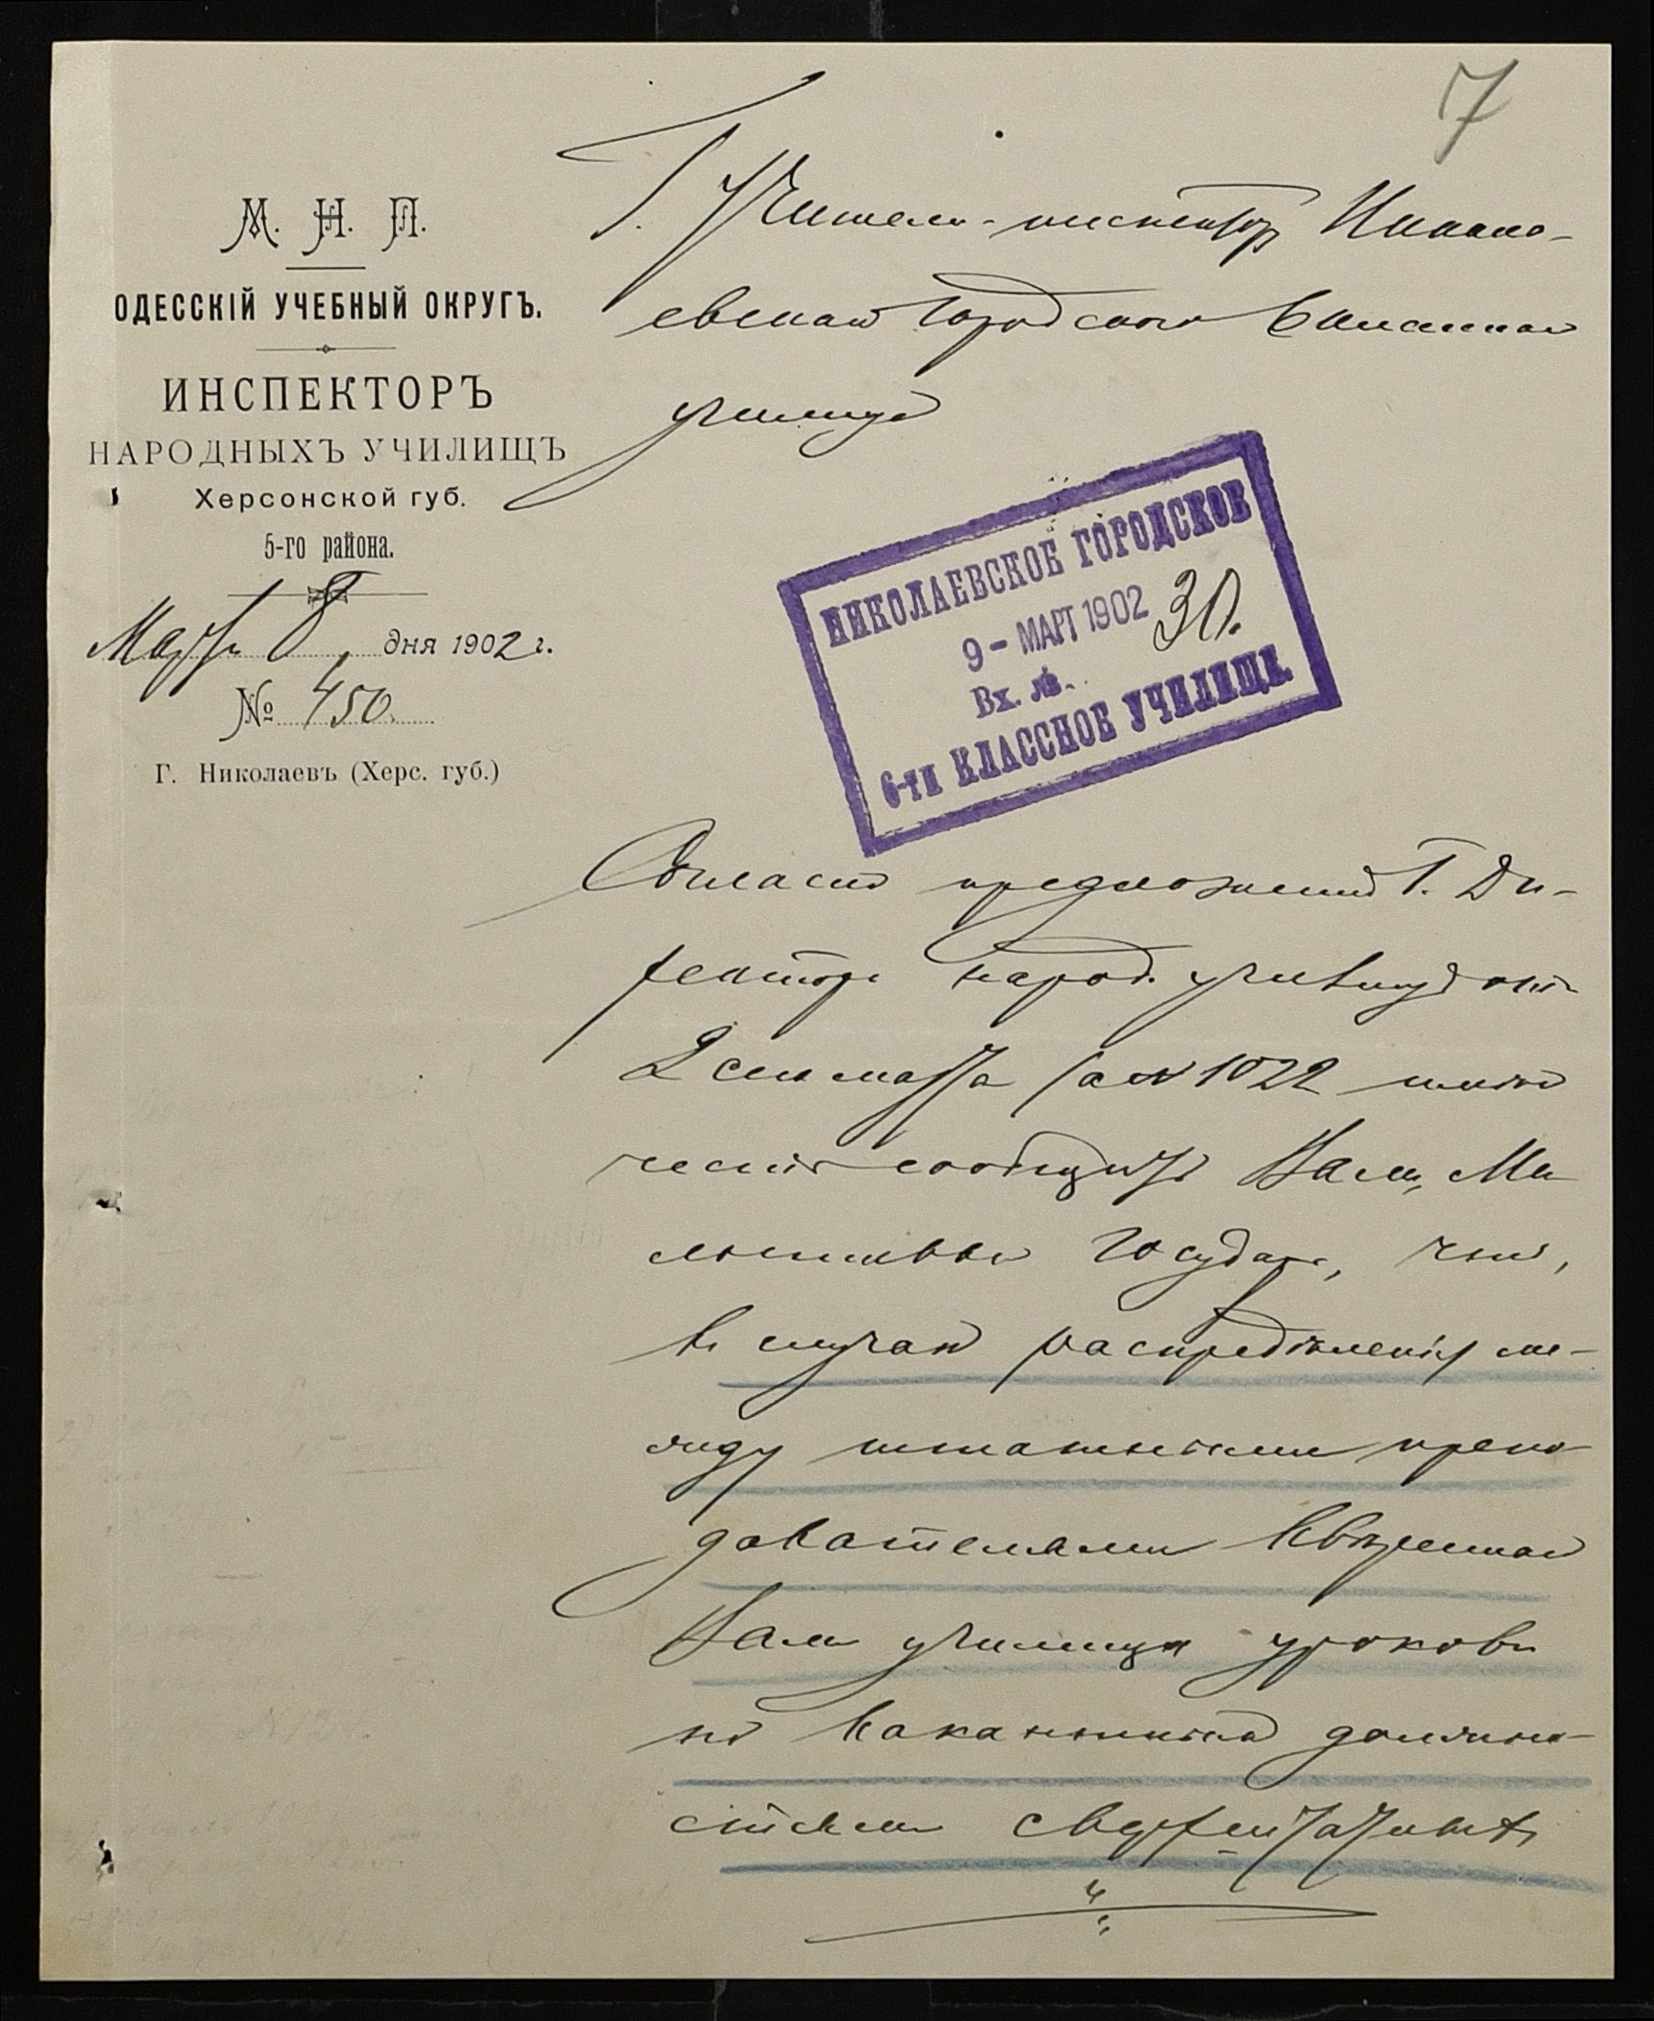 7
М. Н. П.
ОДЕССКІЙ УЧЕБНЫЙ ОКРУГЪ.
ИНСПЕКТОРЪ
НАРОДНЫХЪ УЧИЛИЩЪ
Херсонской губ.
5-го района.
Марта 8 дня 1902 г.
№ 450.
Г. Николаевъ (Херс. губ.)
Г. Учителю-инспектору Никола-
евскаго городского 6 классного
училища
НИКОЛАЕВСКОЕ ГОРОДСКОЕ
9 - МАРТ 1902
30.
Вх. №.
6-ти КЛАССНОЕ УЧИЛИЩЕ.
Согласно предложенія Г. Ди-
ректора народ. училищъ отъ
2 сего марта за № 1022 имѣю
честь сообщить Вамъ, Ми-
лостивый Государь, что,
въ случаѣ распредѣленія ме-
жду штатными препо-
давателями ввѣреннаго
Вамъ училища уроковъ
по вакантнымъ должно-
стямъ